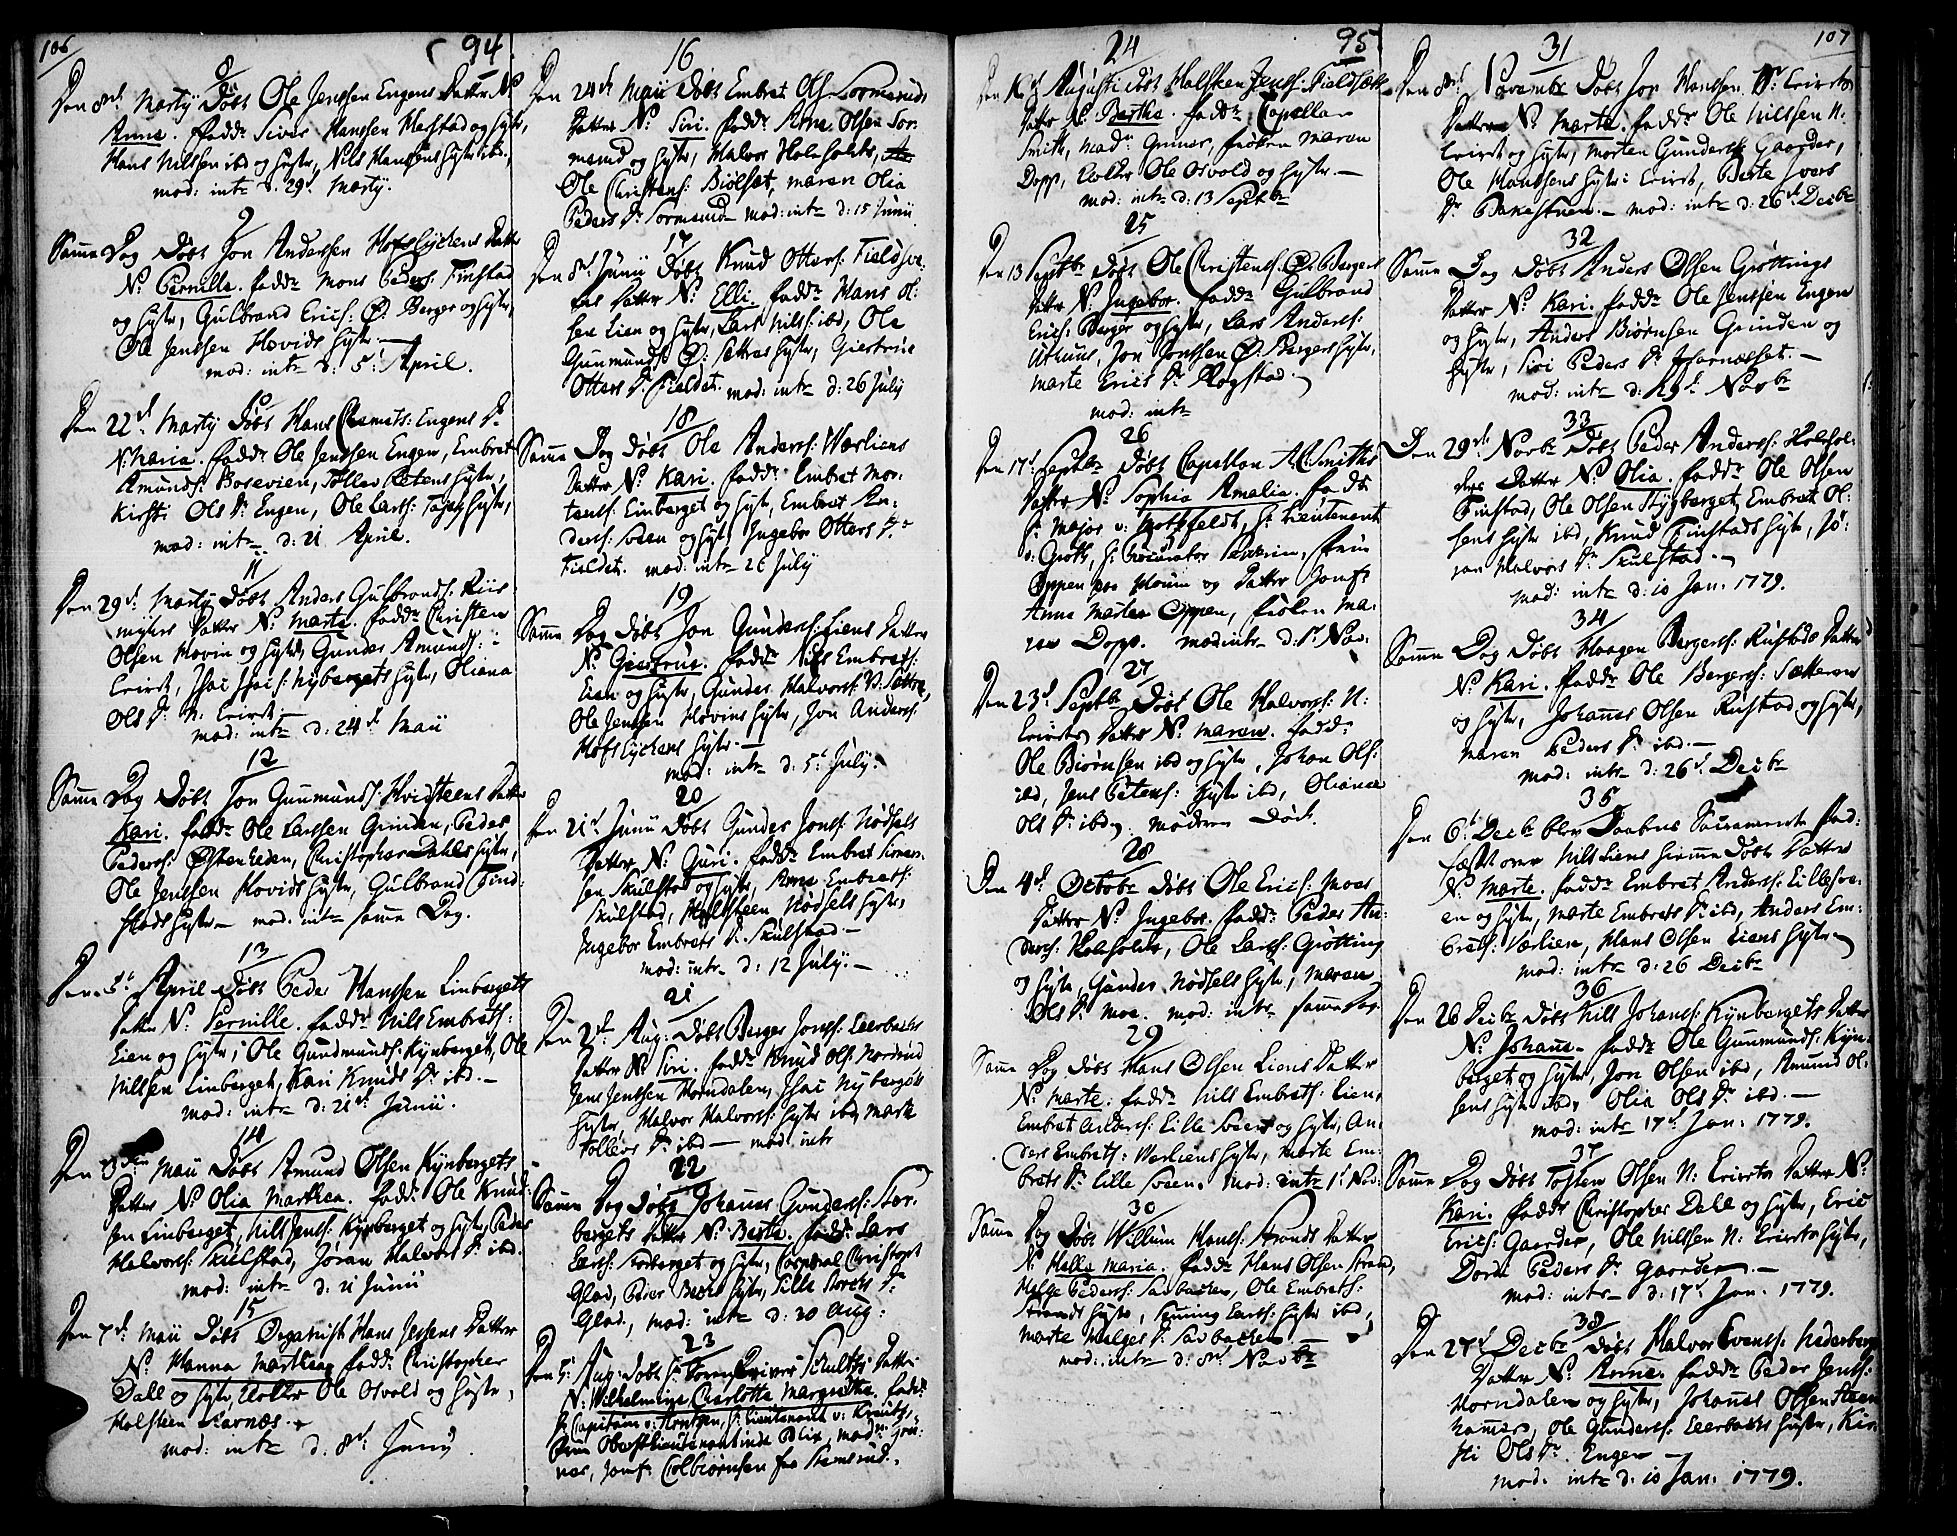 106
94
8
Den 8de Martij Døbt Ole Jenssen Engens Datter N:
Anna. Fadd: Siver Hanssen Hafstad og hustr,
Hans Nilssen ibd og hustr, Nils Hanssens hustr ibd.
mod: intr d: 29de Martij.
9
Samme Dag Døbt Jon Anderssen Hofslyckens Datter
N: Pernille. Fadd: Mons Peders: Finstad
og hustr, Gulbrand Erics: Ø: Berger og hustr,
Ole Jenssen Hovids hustr
mod: intr d: 5t April.
10
Den 22d Martij Døbt Hans Clemets: Engens Dr
N: Maria. Fadd: Ole Jenssen Engen, Embret
Amunds: Bosevien, Tollev hustr,
Kirsti Ols Dr Engen, Ole Larss: hustr,
mod: intr d: 21 April.
11
Den 29d Martij Døbt Anders Gulbrands: Riis
Datter N: Marte. Fadd: Christen
Olsen Movin og hustr, Gunder Amunds: i
Ericst, Isac Isacs: Nyebergets hustr, Oliana
Ols Dr N: Ericst.
mod: intr d: 24d Maii
12
Samme Dag Døbt Jon Gunmunds: Hvidsteens Datter
Kari. Fadd: Ole Larssen Grinden, Peder
Peders: Østenheden, Christopher Dahls hustr,
Ole Jenssen Hovids hustr, Gulbrand Find-
stads hustr mod: intr samme Dag.
13
Den 5t April Døbt Peder Hanssen Linbergets
Datter N: Pernille. Fadd: Nils Embrets:
Lien og hustr, Ole Gundmunds: Kynberget, Ole
Nilssen Linberget, Kari Knuds Dr ibd.
mod: intr d: 21de Junii.
14
Den 3den Maii Døbt Amund Olsen Kynbergets
Datter N: Olia Marthea. Fadd: Ole Knud-
sen Linberget, Nils Jens: Kynberget og hustr, Peder
Halvors: Skulstad, Jøran Halvors Dr ibd.
mod: intr d: 21 Junii
15
Den 7de Maii Døbt Organist Hans Jessens Datter
N: Hanna Marthea Fadd: Christopher
Dall og hustr, Ole Osvold og hustr,
Halsteen Karnæs.
mod: intr d: 8de Junij.
16
Den 24de Maii Døbt Embret Ols: Sormunds
Datter N: Siri. Fadd: Arne Olsen Sor-
mund og hustr, Halvor Holsholdt,
Ole Christens: Biølset, Maren Olia
Peders Dr Sormund mod: intr d: 15 Junii
17
Den 8de Junii Døbt Knud Otters: Fieldse-
ets Datter N: Elli. Fadd: Hans Ol-
sen Lien og hustr, Lars Nilss: ibd, Ole
Gunmunds: Ø: Sættres hustr, Giertrue
Otters Dr Fieldet. mod: intr d: 26 July
18
Samme Dag Døbt Ole Anderss: Værliens
Datter N: Kari. Fadd: Embret Mor-
tens: Linberget og hustr, Embret An-
ders: Soeen og hustr, Ingebor Otters Dr
Fieldet. mod: intr d: 26 July
19
Samme Dag Døbt Jon Gunders: Liens Datter
N: Giertrue. Fadd: Nils Embrets:
Lien og hustr, Gunder Halvors: N: Sættre,
Ole Jenssen Hovins hustr, Jon Anders:
Hofslyckens hustr.
mod: intr d: 5t July.
20
Den 21de Junii Døbt Gunder Jons: Nødsels
Datter N: Guri. Fadd: Embret Simen-
sen Skulstad og hustr, Arne Embrets:
Skulstad, Halsteen Nødsels hustr,
Ingebor Embrets Dr Skulstad
mod: intr d: 12 July.
21
Den 2de Aug: Døbt Berger Jons: Leerbechs
Datter N: Siri. Fadd: Knud Ols: Nordrud
Jens Jenssen Norndalen, Isac Nybergets
hustr, Halvor Halvors: hustr ibd, Marte
Tollevs Dr ibd mod: intr
22
Samme Dag Døbt Johanes Gunders: Stor-
bergets Datter N: Berte. Fadd: Lars
Larss: Storberget og hustr, Corporal Christopher
Glad, hustr, Sille Dr
Glad, mod: intr d: 30 Aug:
23
Den 5t Aug: Døbt Hr Schultz Datter
N: Wilhelmine Charlotte Margrethe. Fadd:
Hr Capitain v: Arntzen, Hr Lieutenant v: Kreutz,
Frue Oberstlieutenantinde Blix, Mad:
Jomf: Colbiørnsen fra Stemsrud.
24
95
Den Augusti Døbt Halsteen Jens: Fieldsets
Datter N: Berthe. Fadd: Capellan
Smith, Mad: Gunner, Frøken Maren
Dopp, Ole Osvold og hustr
mod: intr d: 13 Septbr
25
Den 13 Septbr Døbt Ole Christens: Ø: Bergers
Datter N: Ingebor. Fadd: Gulbrand
Erics: Berger og hustr, Lars Anders:
Utkuns, Jon Jonssen Ø: Bergers hustr,
Marte Erics Dr Rogstad.
mod: intr
26
Den 17d Septbr Døbt Capellan A: C: Smiths
Datter N: Sophia Amalia. Fadd:
Hr Major v: Grotfeldt, Hr Lieutenant
v: Grott, Hr Procurator, Frue
Oppen paa Houm og Datter Jomf:
Anne Marten Oppen, Frøken Ma-
ren Dopp. mod: intr d: 1t Nov:
27
Den 23d Septbr Døbt Ole Halvors: N:
Ericsts Datter N: Maren. Fadd:
Ole Biørnsen ibd og hustr, Johan Ols:
ibd, Jens Petters: hustr ibd, Oliana
Ols Dr ibd. Moderen Død.
28
Den 4de Octobr Døbt Ole Erics: Moes
Datter N: Ingebor. Fadd: Peder An-
ders: Holsholdt, Ole Larss: Grøtting
og hustr, Gunder Nødsels hustr, Maren
Ols Dr Moe. mod: intr samme Dag.
29
Samme Dag Døbt Hans Olsen Liens Datter
N: Marte. Fadd: Nils Embrets: Lien,
Embret Anders: Lille Soeen og hustr, An-
ders Embrets: Værliens hustr, Marte Em-
brets Dr Lille Soeen. mod: intr 1t Nov:
30
Samme Dag Døbt Willum Hans: Strands Datter
N: Helle Maria. Fadd: Hans Olsen Strand,
Helge Peders: Sæbachen, Ole Embrets:
Strands hustr, Larss: hustr ibd,
Marte Helges Dr Sæbachen
mod: intr d: 8de Novbr
31
107
Den 8de Novembr Døbt Jon Hanssen N: Ericsts
Datter N: Marte. Fadd: Ole Nilssen N:
Ericst og hustr, Morten Gunders: Gaarder,
Ole Hanssens hustr: Ericst, Berte Ivers
Dr Bakestuen. mod: intr d: 26de Decbr
32
Samme Dag Døbt Anders Olsen Grøttings
Datter N: Kari. Fadd: Ole Jenssen Engen
og hustr, Anders Biørnsen Grinden og
hustr, Siri Peders Dr
mod: intr d: 29d Novbr
33
Den 29de Novbr Døbt Peder Anders: Holshol-
dts Datter N: Olia. Fadd: Ole Olsen
Finstad, Ole Olsen Stygberget, Embret Ol-
sens hustr ibd, Knud Finstads hustr, Jø-
ran Halvors Dr Skulstad.
mod: intr d: 10 Jan: 1779.
34
Samme Dag Døbt Haagen Bergers: Rustads Datter
N: Kari. Fadd: Ole Bergers: Sætteren
og hustr, Johannes Olsen Rustad og hustr,
Maren Peders Dr ibd.
mod: intr d: 26d Decbr
35
Den 6t Decbr blev Daabens Sacramente stad-
fæstet over Nils Liens hiemme døbt Datter
N: Marte. Fadd: Embret Anders: Lillesoe-
en og hustr, Marte Embrets Dr ibd, Anders Em-
brets: Værlien, Hans Olsen Liens hustr
mod: intr d: 26 Decbr
36
Den 26 Decbr Døbt Nils Johans: Kynbergets Datter
N: Johana. Fadd: Ole Gunmunds: Kyn-
berget og hustr, Jon Olsen ibd, Amund Ol-
sens hustr ibd, Olia Ols Dr ibd.
mod: intr 17d Jan: 1779.
37
Samme Dag Døbt Tosten Olsen N: Ericsts Datter N:
Kari. Fadd: Christopher Dall og hustr, Eric
Erics: Gaarder, Ole Nilssen N: Ericsts hustr,
Dorte Peders Dr Gaarder.
mod: intr d: 17d Jan: 1779.
38
Den 27d Decbr Døbt Halvor Evens: Nederberg
Datter N: Anne. Fadd: Peder Jens:
Norndalen og hustr, Johanes Olsen Steen-
hammer, Ole Gunders: Leerbechs hustr, Kir-
sti Ols Dr Engen
mod: intr d: 10 Jan: 1779.